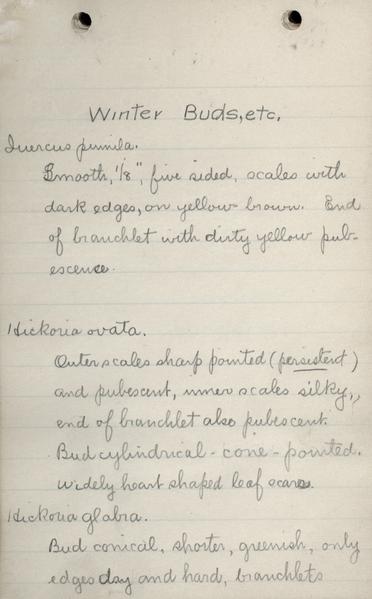 Winter Buds, etc.
Quercus pumila.
Smooth, "1/8", five sided, scales with
dark edges, on yellow brown. End
of branchlet with dirty yellow pub-
escence.
Hickoria ovata.
Outer scales sharp pointed (persistent)
and pubescent, inner scales silky,,
end of branchlet also pubescent.
Bud cylindrical - cone - pointed.
Widely heart shaped leaf scars.
Hickoria glabra.
Bud conical, shorter, greenish, only
edges day and hard, branchlets